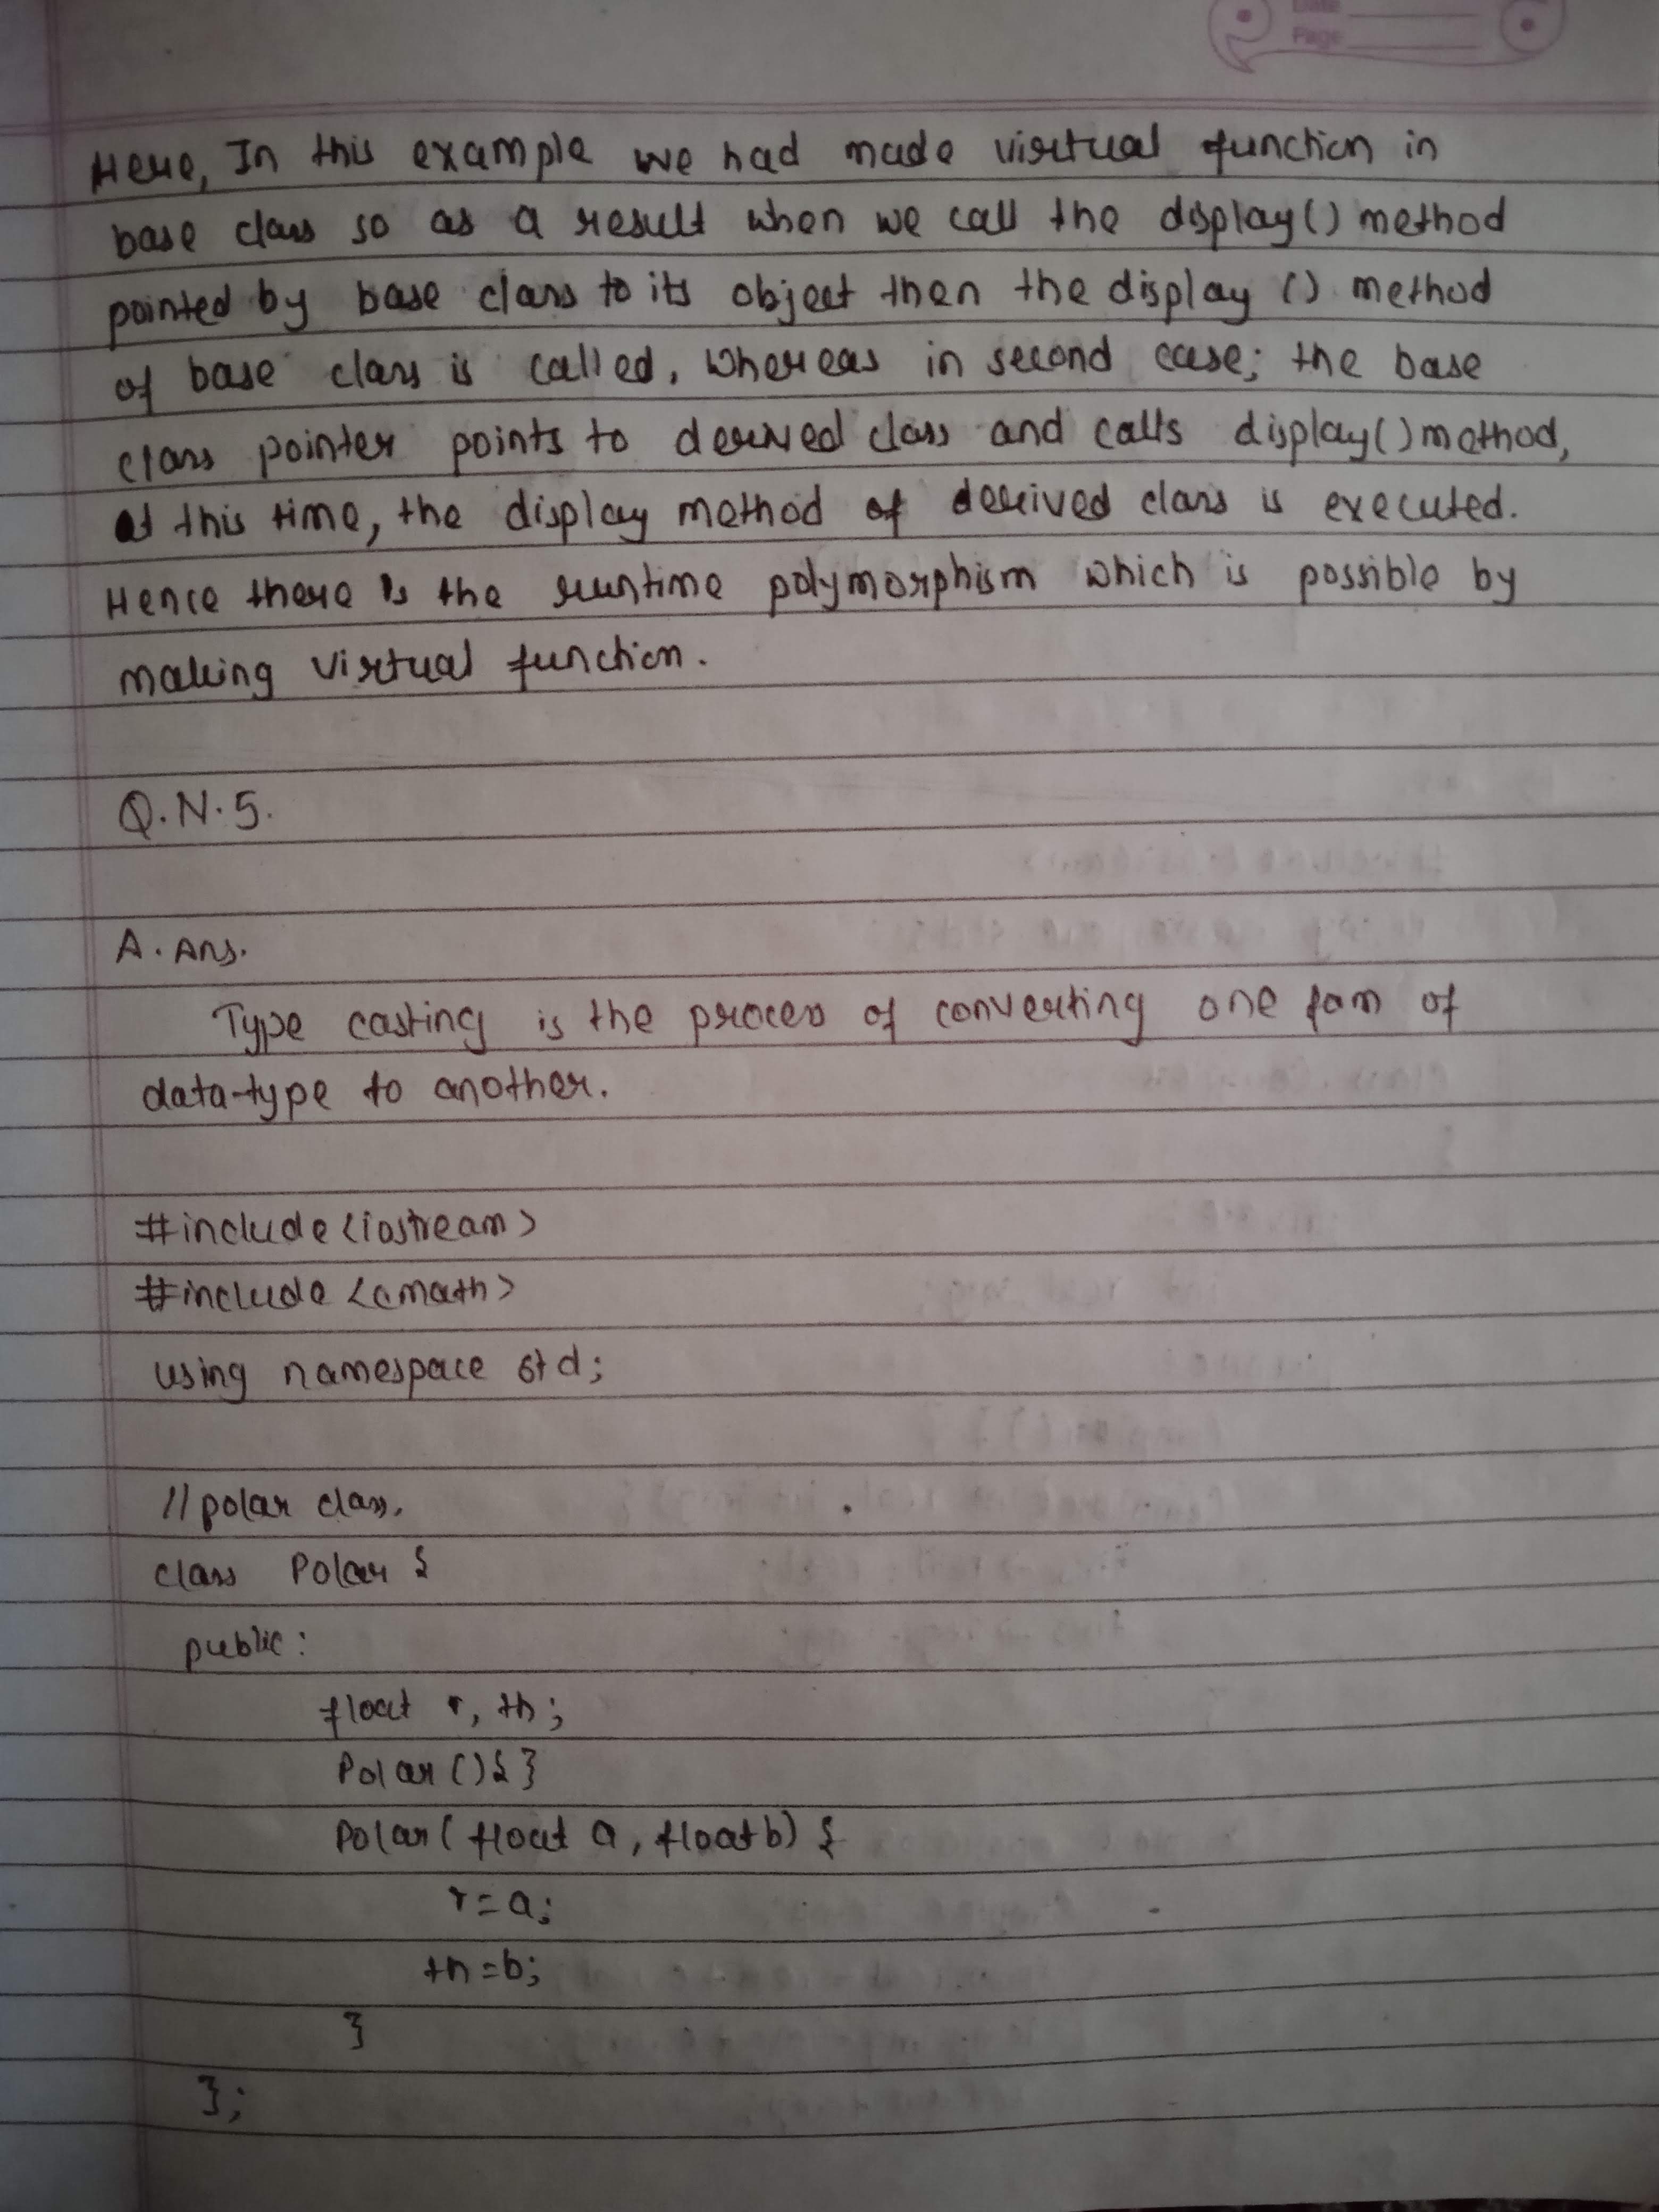 Date
Page
Here, In this example we had made virtual function in
base class so as a result when we call the display() method
pointed by base class to its object then the display () method
of base class is called, whereas in second case; the base
class pointer points to derived class and calls display() method,
at this time, the display method of derived class is executed.
Hence there is the runtime polymorphism which is possible by
making virtual function.
Q.N.5.
A. Ans.
Type casting is the process of converting one form of
data-type to another.
#include <iostream>
#include <cmath>
using namespace std;
//polar class.
class Polar {
public:
float r, th;
Polar () { }
Polar ( float a, float b) {
r = a;
th = b;
}
};